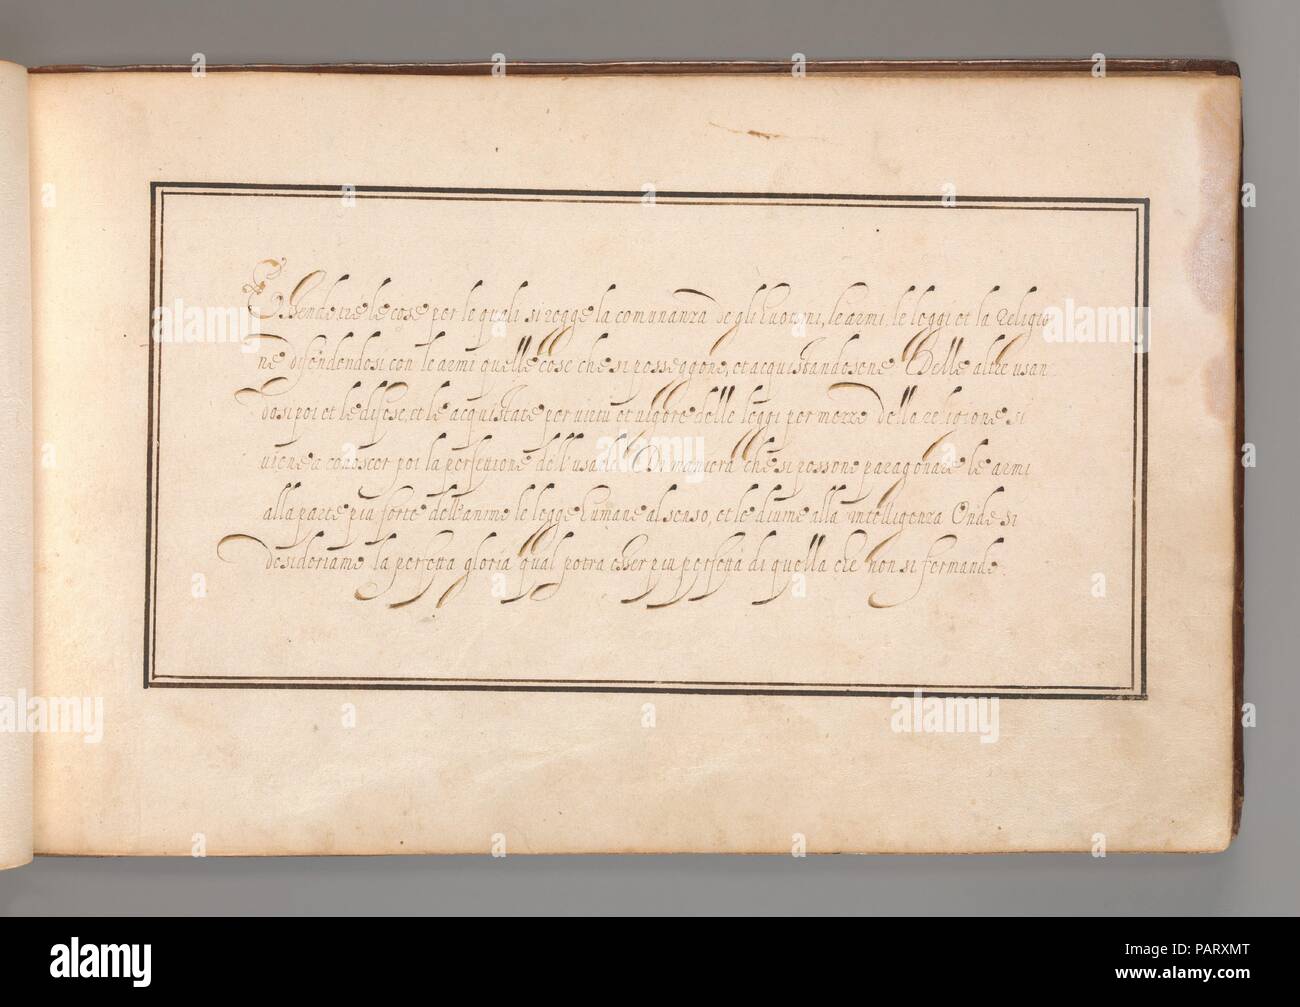 Essendo tre le cose per le quali si regge la comunanza degli huomini, le armi, le leggi et la Religio
ne difendendosi con le armi quelle cose che si posseggono, et acquistandosene Delle altre usan
dosi poi et le difese, et le acquistate per virtù et vigore delle leggi per mezzo della religione si
viene a conoscer poi la perfettione dell'usarle Di maniera che si possono paragonare le armi
alla parte piu forte dell'animo le legge humane al senso, et le divine alla intelligenza Onde si
desideriamo la perfetta gloria qual potra esser piu perfetta di quella che non si fermando.
alamy
Image ID: PARXMT
www.alamy.com